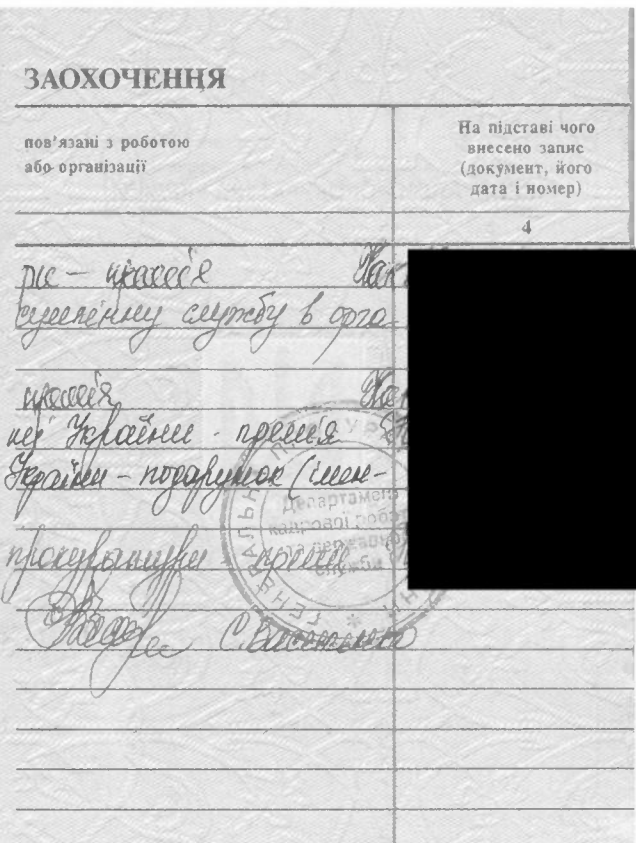 ЗАОХОЧЕННЯ
пов'язані з роботою
або організації
На підставі чого
внесено запис
(документ, його
дата і номер)
4
рис – премія Нак
сумлінну службу в орга-
премія Нак
ції України - премія
України – подарунок (імен-
прокуратури премія
Департамент
кадрової робо
та державно
служби